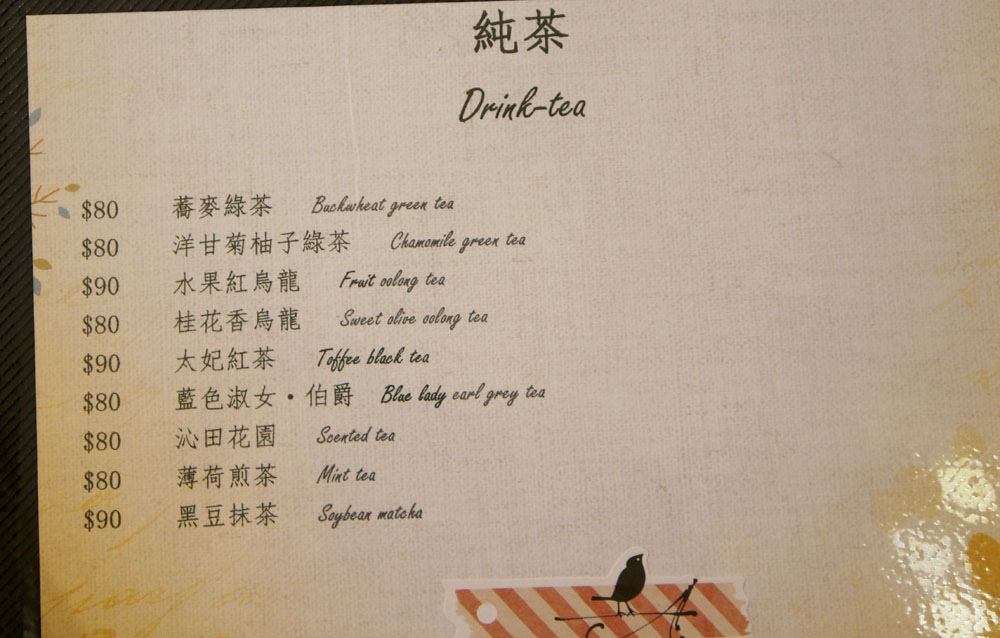 純茶
Drink-tea
$80 蕎麥綠茶 Buckwheat green tea
$80 洋甘菊柚子綠茶 Chamomile green tea
$90 水果紅烏龍 Fruit oolong tea
$80 桂花香烏龍 Sweet olive oolong tea
$90 太妃紅茶 Toffee black tea
$80 藍色淑女・伯爵 Blue lady earl grey tea
$80 沁田花園 Scented tea
$80 薄荷煎茶 Mint tea
$90 黑豆抹茶 Soybean matcha